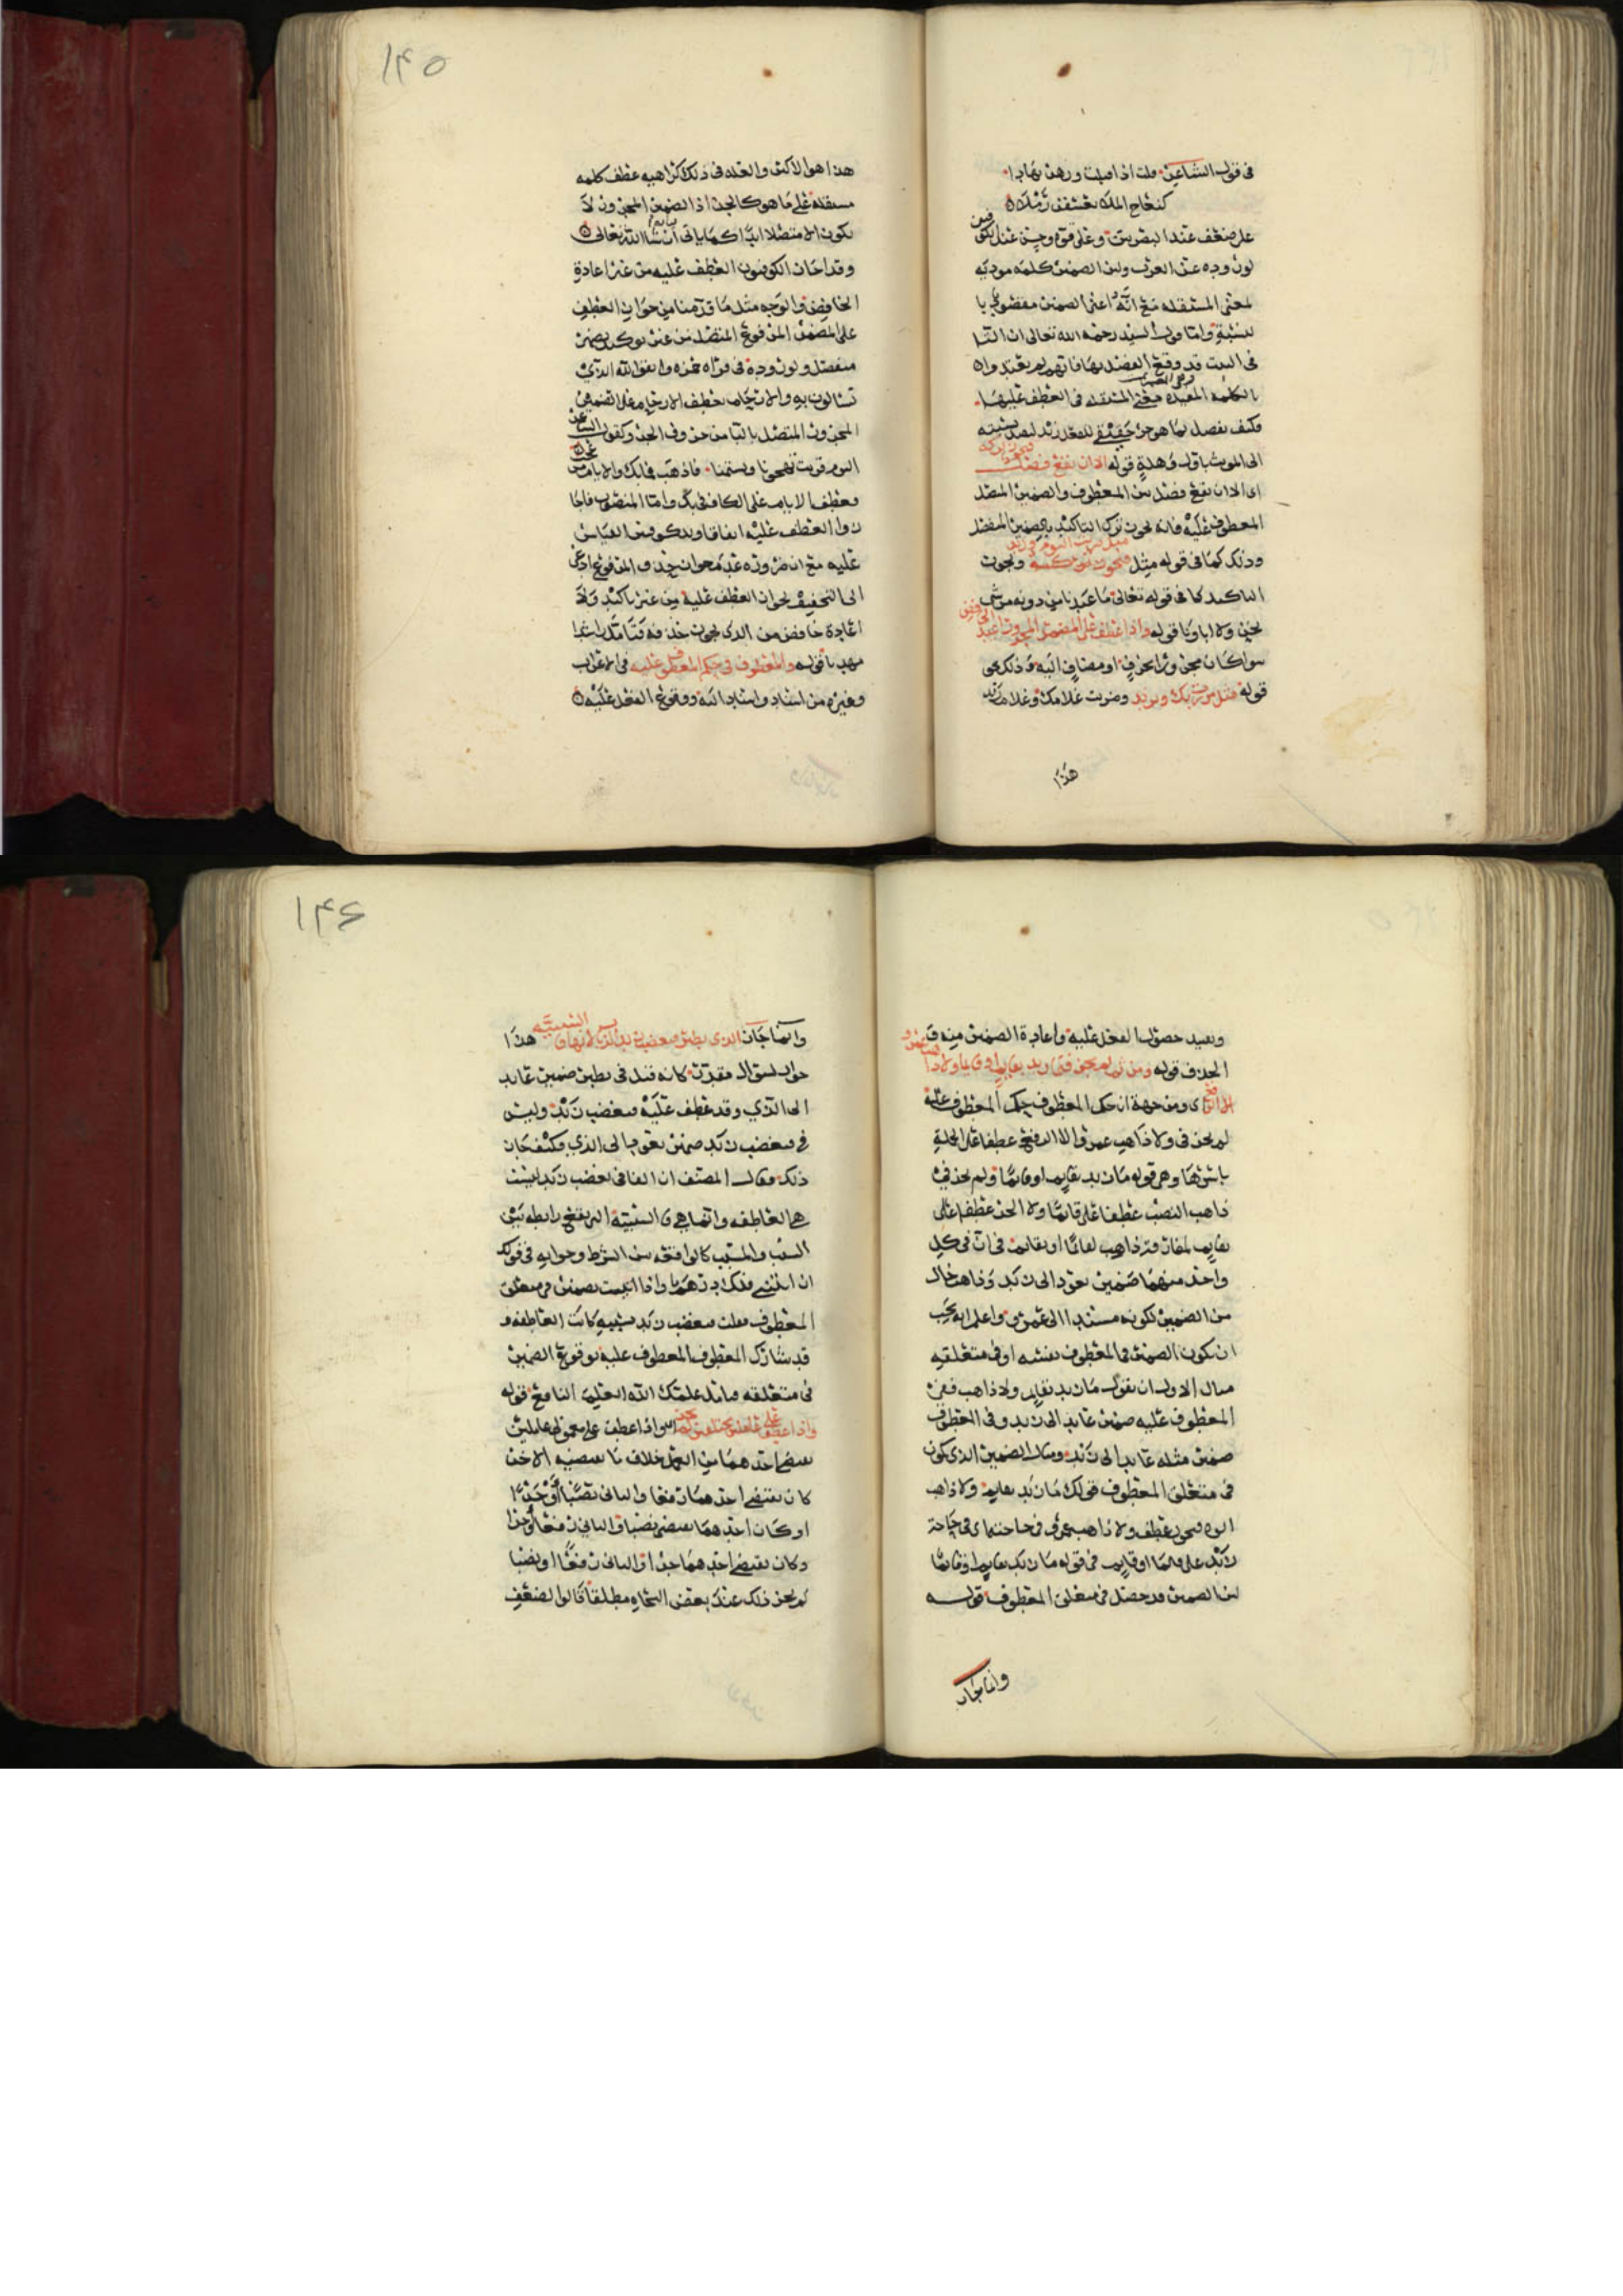 في قول الشاعر قلت اذا اقبلت وزهر تهادا
كنعاج الملا تعسفن رملا
على ضعف عند البصريين وعلى قوة وحسن عند الكوفيين
لوروده عن العرب ولان الضمير كلمه مودية
لمعنى المستقله مع انه اعنى الضمير مفصول
واما قول السيد رحمه الله تعالى ان التا
في البيت قد وقع الفصل بها فانهم لم
الكلمه المفيده معنى المستقله في العطف عليها
فكيف يفصل بما هو حرف للفعل زيد لفصل
الى المونث باول وهلة قوله الا ان يقع فصل فيجوز تركه
اي الا ان يقع فصل بين المعطوف والضمير المتصل
المعطوف عليه فانه يجوز ترك التاكيد بالضمير المنفصل
وذلك كما في قوله مثل ضربت اليوم وزيد ويجوز
التاكيد كما في قوله تعالى ما عبدنا من دونه من شي
نحن ولا اباونا قوله واذا عطف على المضمر المجرور اعيد الخافض
سوا كان مجرورا بحرف او مضاف اليه وذلك في
قوله مثل مررت بك وبزيد وضربت غلامك وغلام زيد
هذا
١٤٥
هذا هو الاكثر والعله في ذلك كراهيه عطف كلمه
مستقله على ما هو كالجز اذ الضمير المجرور لا
يكون الا متصلا ابدا كما ياتي بيانه ان شا الله تعالى
وقد اجاز الكوفيون العطف عليه من غير اعادة
الخافض والوجه مثل ما قدمنا من جواز العطف
على المضمر المرفوع المتصل من غير توكيد بضمير
منفصل ولوروده في قراه حمزه واتقوا الله الذي
تسالون به والارحام بعطف الارحام على الضمير
المجرور المتصل بالبا من حروف الجر وكقول الشاعر
اليوم قربت تهجونا وتشتمنا فاذهب فما بك والايام من عجب
فعطف الايام على الكاف في بك واما المنصوب فاجا
زوا العطف عليه اتفاقا
عليه مع ان ضرورة عدم جواز حذف المرفوع ادعى
الى التخفيف بجواز العطف عليه من غير تاكيد ولا
اعادة خافض من الذي يجوز حذفه فتامل راشدا
مهديا قوله والمعطوف في حكم المعطوف عليه في الاعراب
وغيره من اسناد واسناد اليه ووقوع الفعل عليه
وبعيد حصول الفعل عليه واعادة الضمير منه
الحذف قوله ومن ثم لم يجز في ما زيد بقايم او قايما ولا ذاهب عمرو
الا الرفع اي ومن جهة ان حكم المعطوف حكم المعطوف عليه
لم يجز في ولا ذاهب عمرو الا الرفع عطفا على الجملة
باسرها وهي قوله ما زيد بقايم او قايما ولم يجز في
ذاهب النصب عطفا على قائما ولا الجر عطفا على
بقايم لمفارقة ذاهب لقائما او بقايم في ان في كل
واحد منهما ضمير يعود الى زيد وذاهب خال
من الضمير لكونه مسندا الى عمرو واعلم انه يجب
ان يكون الضمير في المعطوف بنفسه او في متعلقه
مثال الاول ان تقول ما زيد بقايم ولا ذاهب ففي
المعطوف عليه ضمير عايد الى زيد وفي المعطوف
ضمير مثله عايد الى زيد ومثال الضمير الذي يكون
في متعلق المعطوف قولك ما زيد بقايم ولا ذاهب
ابوه فيجوز عطف ولا ذاهب عمرو في حاجته اي في حاجة
زيد على قائما او قايم في قوله ما زيد بقايم او قائما
لان الضمير قد حصل في متعلق المعطوف قوله
وانما جاز
١٤٦
وانما جاز الذي يطير فيغضب زيد الذباب لانها فا السببيه هذا
جواب لسوال مقدر كانه قيل في يطير ضمير عايد
الى الذي وقد عطف عليه فيغضب زيد وليس
في فيغضب زيد ضمير يعود الى الذي فكيف جاز
ذلك فقال المصنف ان الفا في فيغضب زيد ليست
هي العاطفه وانما هي فا السببية التي تقع رابطه بين
السبب والمسبب كالواقعه بين الشرط وجوابه في قولك
ان تاتني فلك درهم واذا اتيت بضمير في متعلق
المعطوف فقلت فيغضب زيد بسببه كانت العاطفه و
قد شارك المعطوف المعطوف عليه بوقوع الضمير
في متعلقه علمك الله العليم النافع قوله
واذا عطف على عاملين مختلفين لم يجز اي واذا عطف على معمولي عاملين
يقتضي احدهما من العمل خلاف ما يقتضيه الاخر
كان يقتضي احدهما رفعا والثاني نصبا او جرا
او كان احدهما يقتضي نصبا والثاني رفعا او جرا
وكان يقتضي احدهما جرا والثاني رفعا او نصبا
لم يجز ذلك عند بعض النحاه مطلقا قالوا لضعف